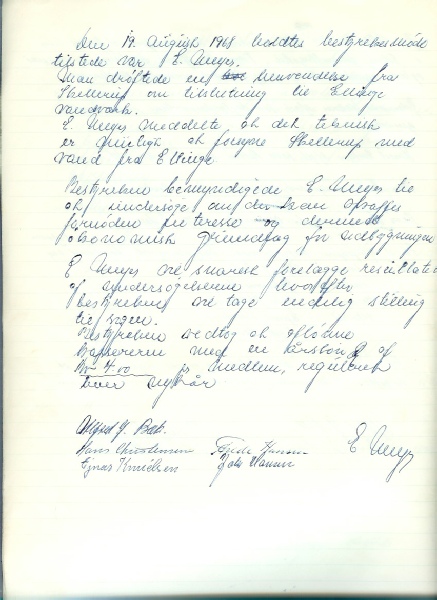 Den 19. August 1968 holdtes bestyrelsesmøde
tilstede var E. Meyer.
Man drøftede en henvendelse fra
Stellerup om tilslutning til Ellinge
vandværk.
E. Meyer meddelte at det teknisk
er muligt at forsyne Stellerup med
vand fra Ellinge
Bestyrelsen bemyndigede E. Meyer til
at undersøge om der kan skaffes
fornøden interesse og dermed
økonomisk grundlag for udbygningen
E Meyer vil snarest forelægge resultatet
af undersøgelserne hvorefter
bestyrelsen vil tage endelig stilling
til sagen.
Bestyrelsen vedtog at aflønne
Kassereren med en årsløn af
Kr 4.00 pr medlem, reguleret
hver nytår
Alfred J. Bak.
Hans Christensen
Ejnar Knudsen
E Meyer